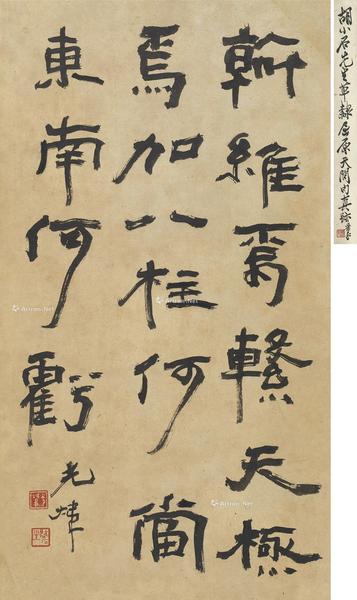 胡小石先生草隸屈原天問句真跡
斡維焉繫天極
焉加八柱何當
東南何虧
光煒